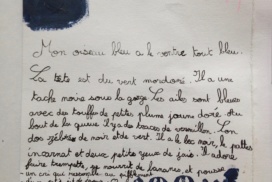 Mon oiseau bleu a le ventre tout bleu.
La tête est du vert mordoré. Il a une
tache noire sous la gorge. Les ails sont bleues
avec des touffes de petites plume jaune doré. Au
bout de la queue il y a des traces de vermillon. Son
dos zébrés de noir et de vert. Il a le bec noir, les pattes
incarnat et deux petits yeux de jais. Il adore
faire trempette, se nourrit de bananes, et pousse
un cri qui ressemble au sifflement